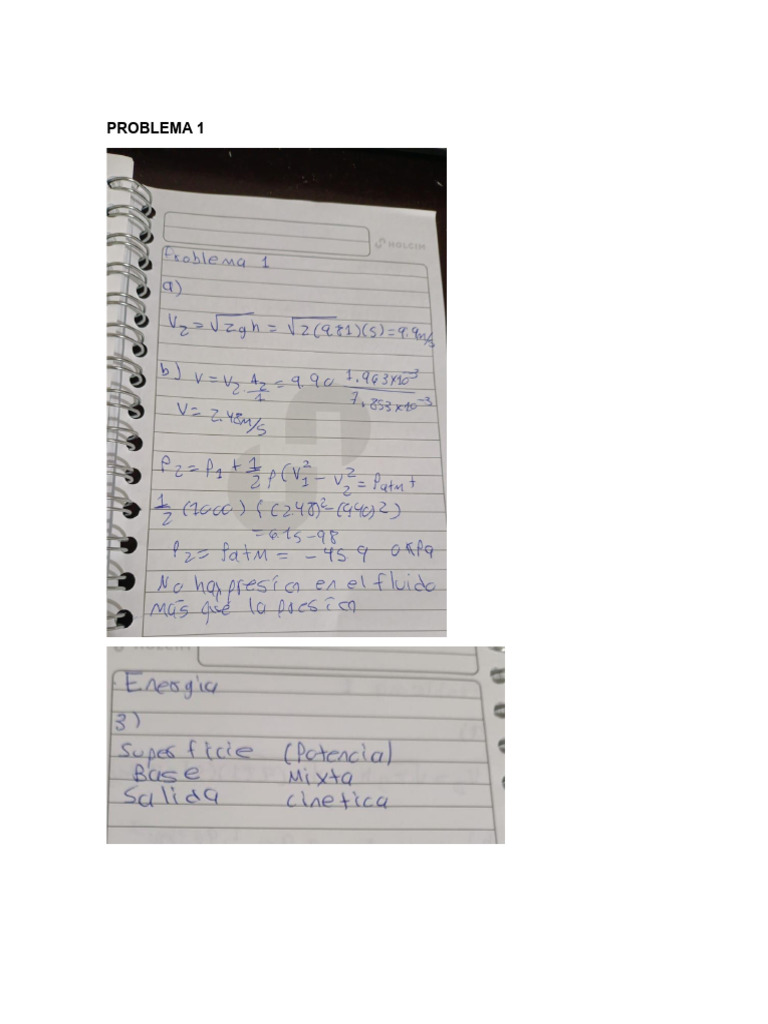 PROBLEMA 1
HOLCIM
Problema 1
a)
V₂ = √2gh = √2(9.81)(5) = 9.9m/s
b) V = V₂ · A₂/1 = 9.90 1.963x10⁻³/7.853x10⁻³
V = 2.48m/s
P₂ = P₁ + 1/2 ρ(V₁² - V₂² = Patm +
1/2 (1000) ((248)² - (990)²)
P₂ = Patm = - 45 9
No hay presion en el fluido
mas que la presion
Energia
3)
Superficie (Potencial)
Base Mixta
Salida cinetica